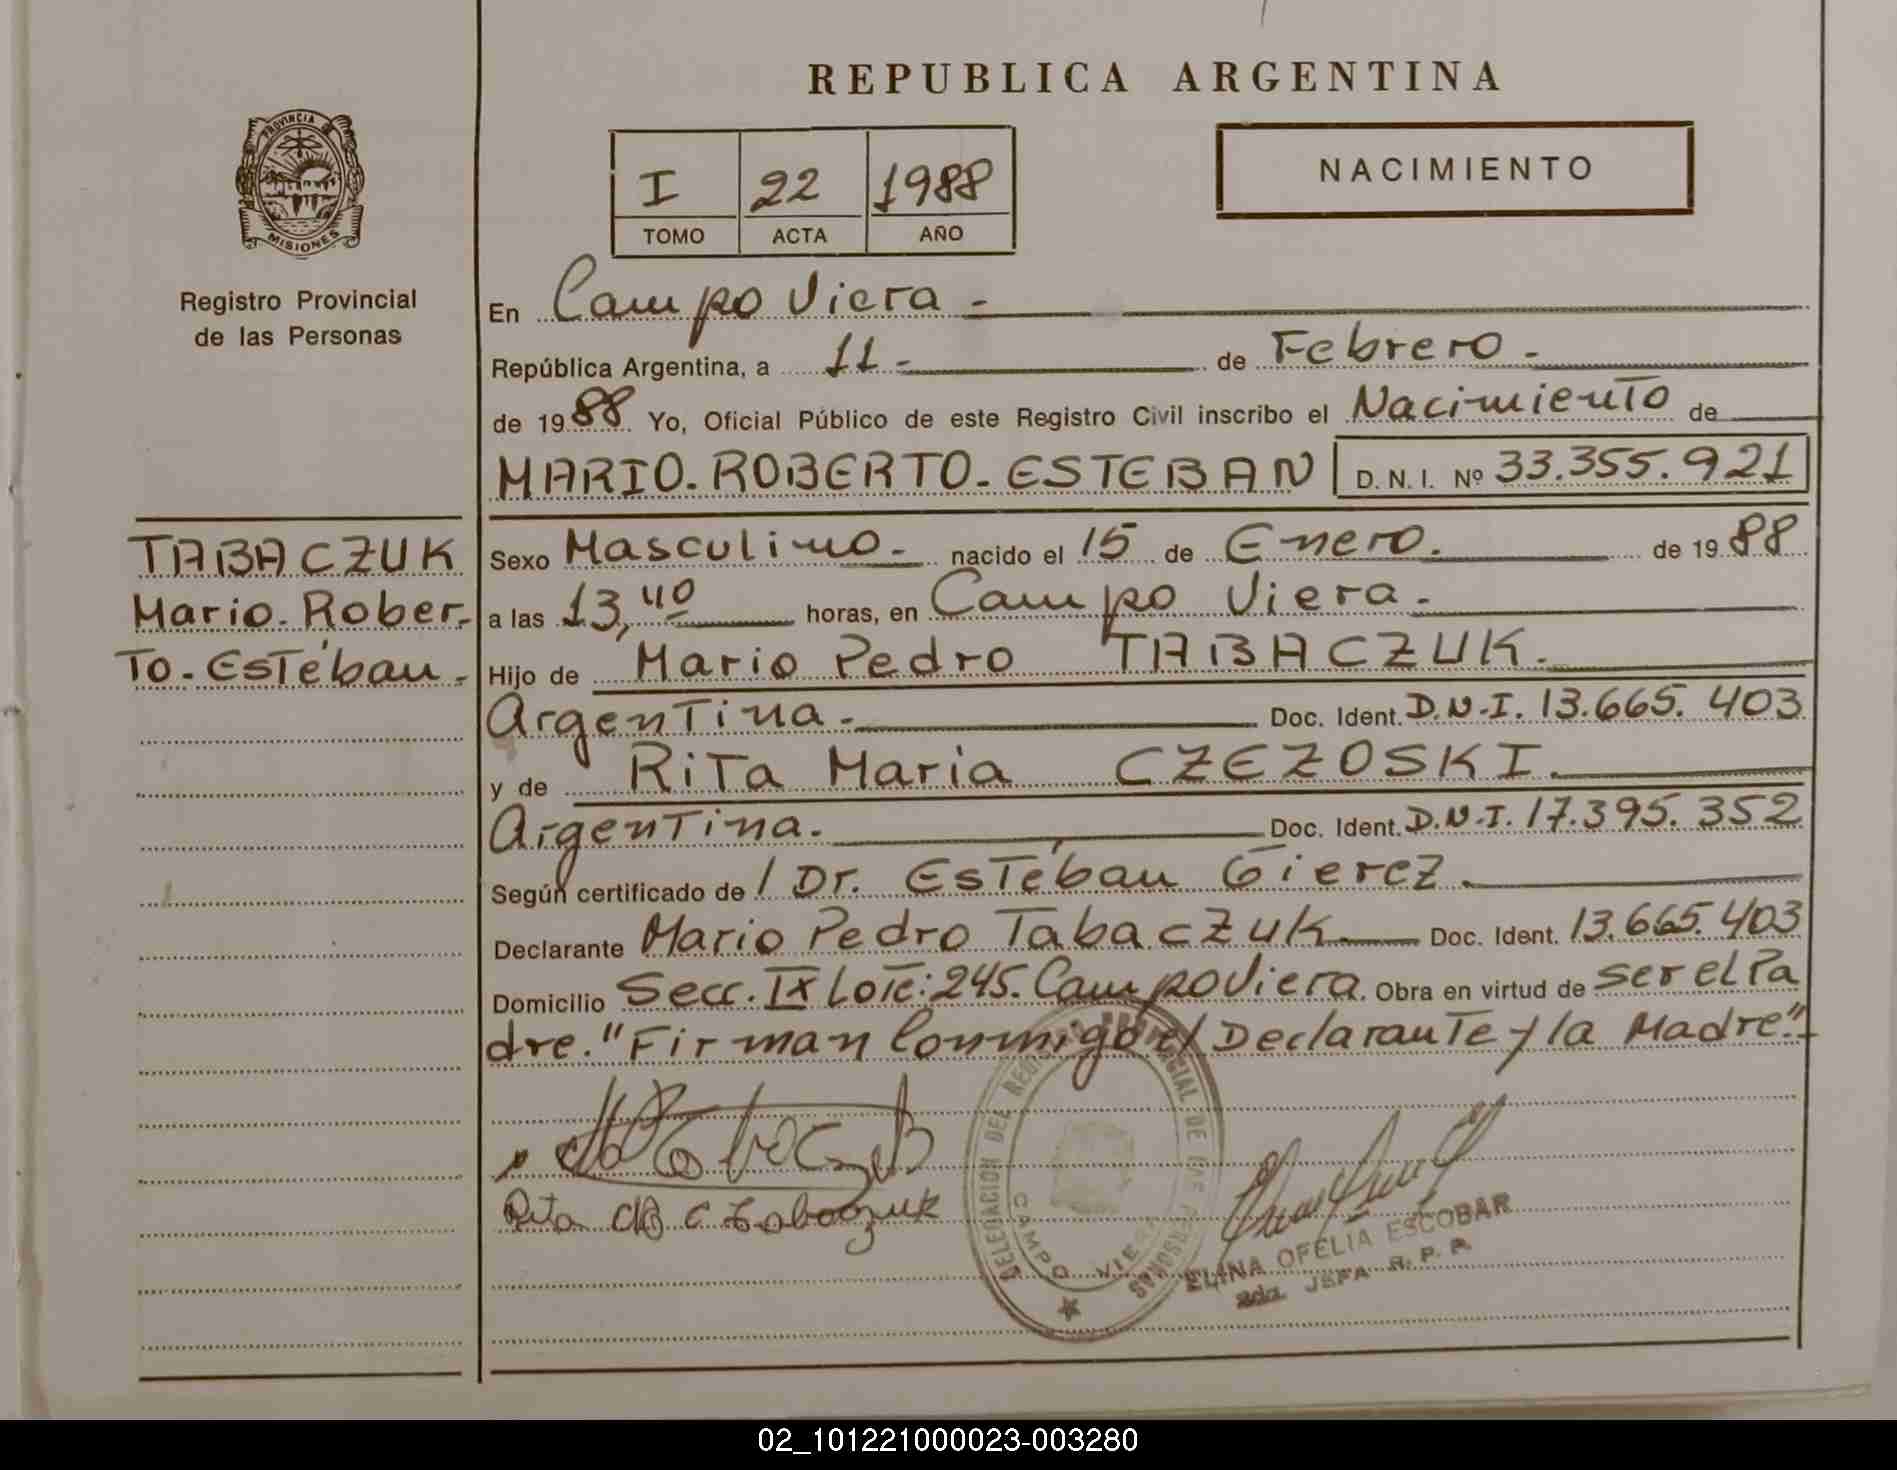 REPUBLICA ARGENTINA
PROVINCIA
MISIONES
Registro Provincial
de las Personas
I 22 1988
TOMO ACTA AÑO
NACIMIENTO
En Campo Viera -
República Argentina, a 11- de Febrero-
de 1988 Yo, Oficial Público de este Registro Civil inscribo el Nacimiento de
MARIO. ROBERTO. ESTEBAN D. N. I. Nº 33.355.921
TABACZUK
Mario. Rober-
to. Estéban-
Sexo Masculino- nacido el 15 de Enero. de 1988
a las 13,40 horas, en Campo Viera-
Hijo de Mario Pedro TABACZUK.
Argentina- Doc. Ident. D.N.I. 13.665.403
y de Rita Maria CZEZOSKI.
Argentina. Doc. Ident. D.N.I. 17.395.352
Según certificado de / Dr. Estéban Gierez.
Declarante Mario Pedro Tabaczuk Doc. Ident. 13.665.403
Domicilio Secc. IX Lote: 245. Campo Viera. Obra en virtud de ser el Pa
dre. "Firman Conmigo el Declarante y la Madre".
DELEGACION DEL REGISTRO PROVINCIAL DE LAS PERSONAS
CAMPO VIERA
ELINA OFELIA ESCOBAR
2da. JEFA R. P. P.
02_101221000023-003280